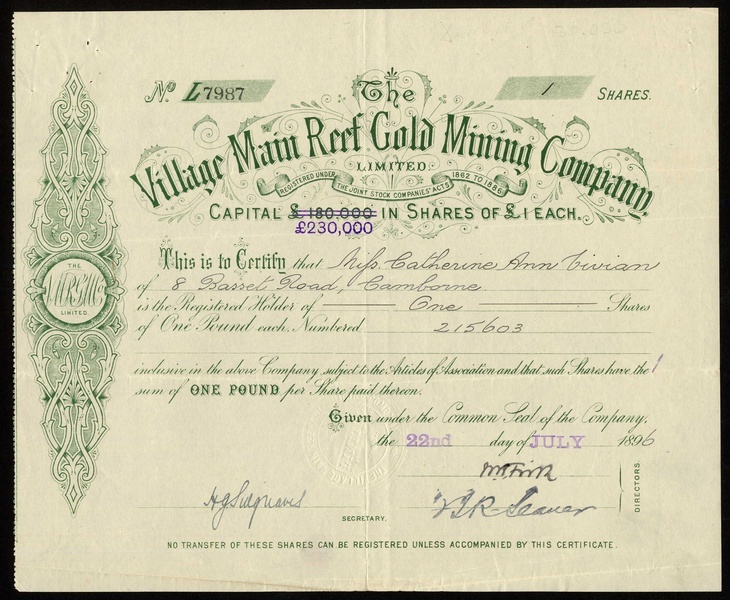 No L7987
1 SHARES.
The
Village Main Reef Gold Mining Company
LIMITED.
REGISTERED UNDER THE JOINT STOCK COMPANIES' ACTS 1862 TO 1886
CAPITAL £ 180.000 IN SHARES OF £1 EACH.
£230,000
This is to Certify that Miss. Catherine Ann Vivian
of 8 Basset Road, Camborne
is the Registered Holder of One Shares
of One Pound each. Numbered 215603
inclusive in the above Company subject to the Articles of Association and that such Shares have the
sum of ONE POUND per Share paid thereon.
Given under the Common Seal of the Company,
the 22nd day of JULY 1896
DIRECTORS.
SECRETARY.
NO TRANSFER OF THESE SHARES CAN BE REGISTERED UNLESS ACCOMPANIED BY THIS CERTIFICATE.
THE
V.M.R.G.M.Co
LIMITED.